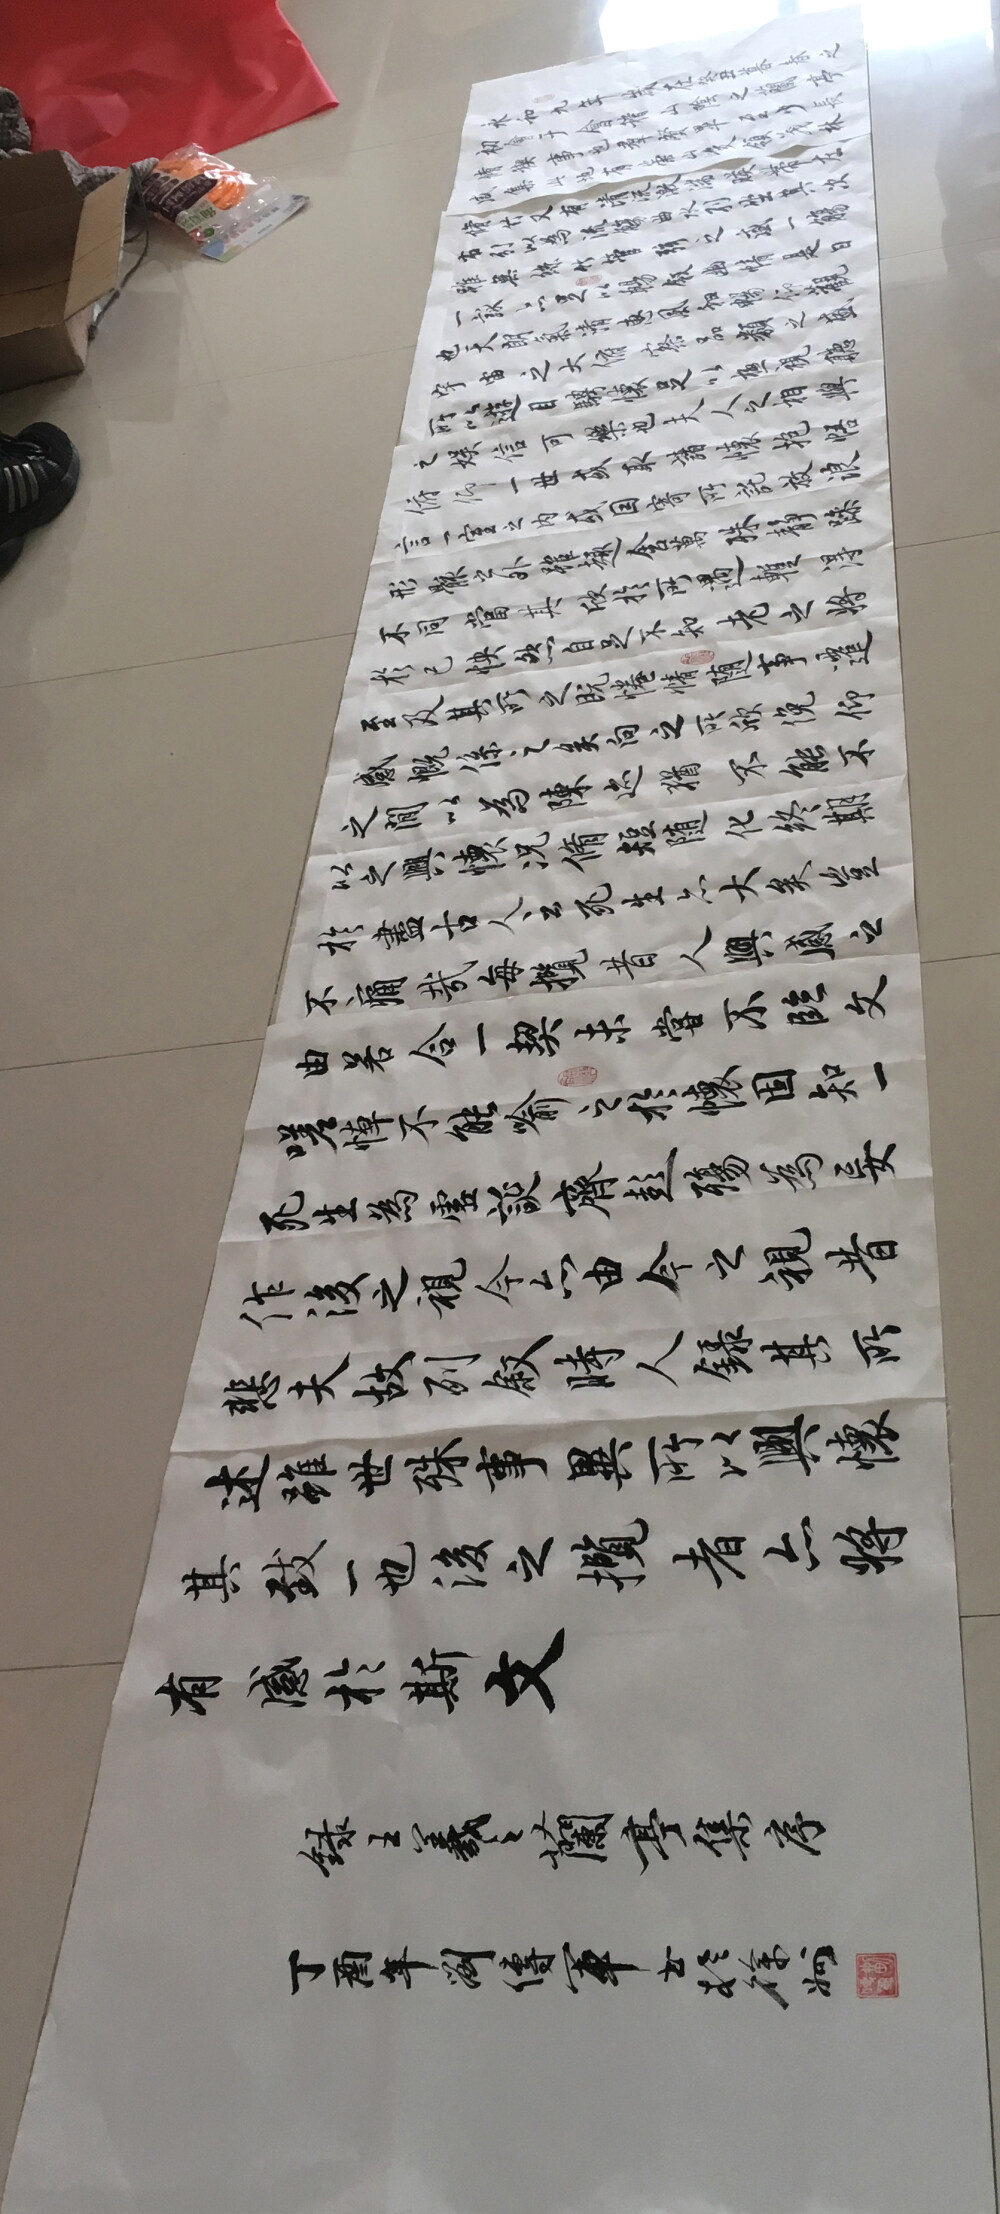 永和九年歲在癸丑暮春之
初會于會稽山陰之蘭亭
脩禊事也群賢畢至少長
咸集此也有崇山峻領茂林
脩竹又有清流激湍映帶左
右引以為流觴曲水列坐其次
雖無絲竹管弦之盛一觴
一詠亦足以暢敘幽情是日
也天朗氣清惠風和暢仰觀
宇宙之大俯察品類之盛
所以遊目騁懷足以極視聽
之娛信可樂也夫人之相與
俯仰一世或取諸懷抱悟
言一室之內或因寄所託放浪
形骸之外雖趣舍萬殊靜躁
不同當其欣於所遇輒得
於己快然自足不知老之將
至及其所之既惓情隨事遷
感慨係之矣向之所欣俛仰
之間以為陳迹猶不能不
以之興懷況脩短隨化終期
於盡古人云死生亦大矣豈
不痛哉每攬昔人興感之
由若合一契未嘗不臨文
嗟悼不能喻之於懷固知一
死生為虛誕齊彭殤為妄
作後之視今亦由今之視昔
悲夫故列敘時人錄其所
述雖世殊事異所以興懷
其致一也後之攬者亦將
有感於斯文
錄王羲之蘭亭集序
丁酉年劉傳軍書於徐州